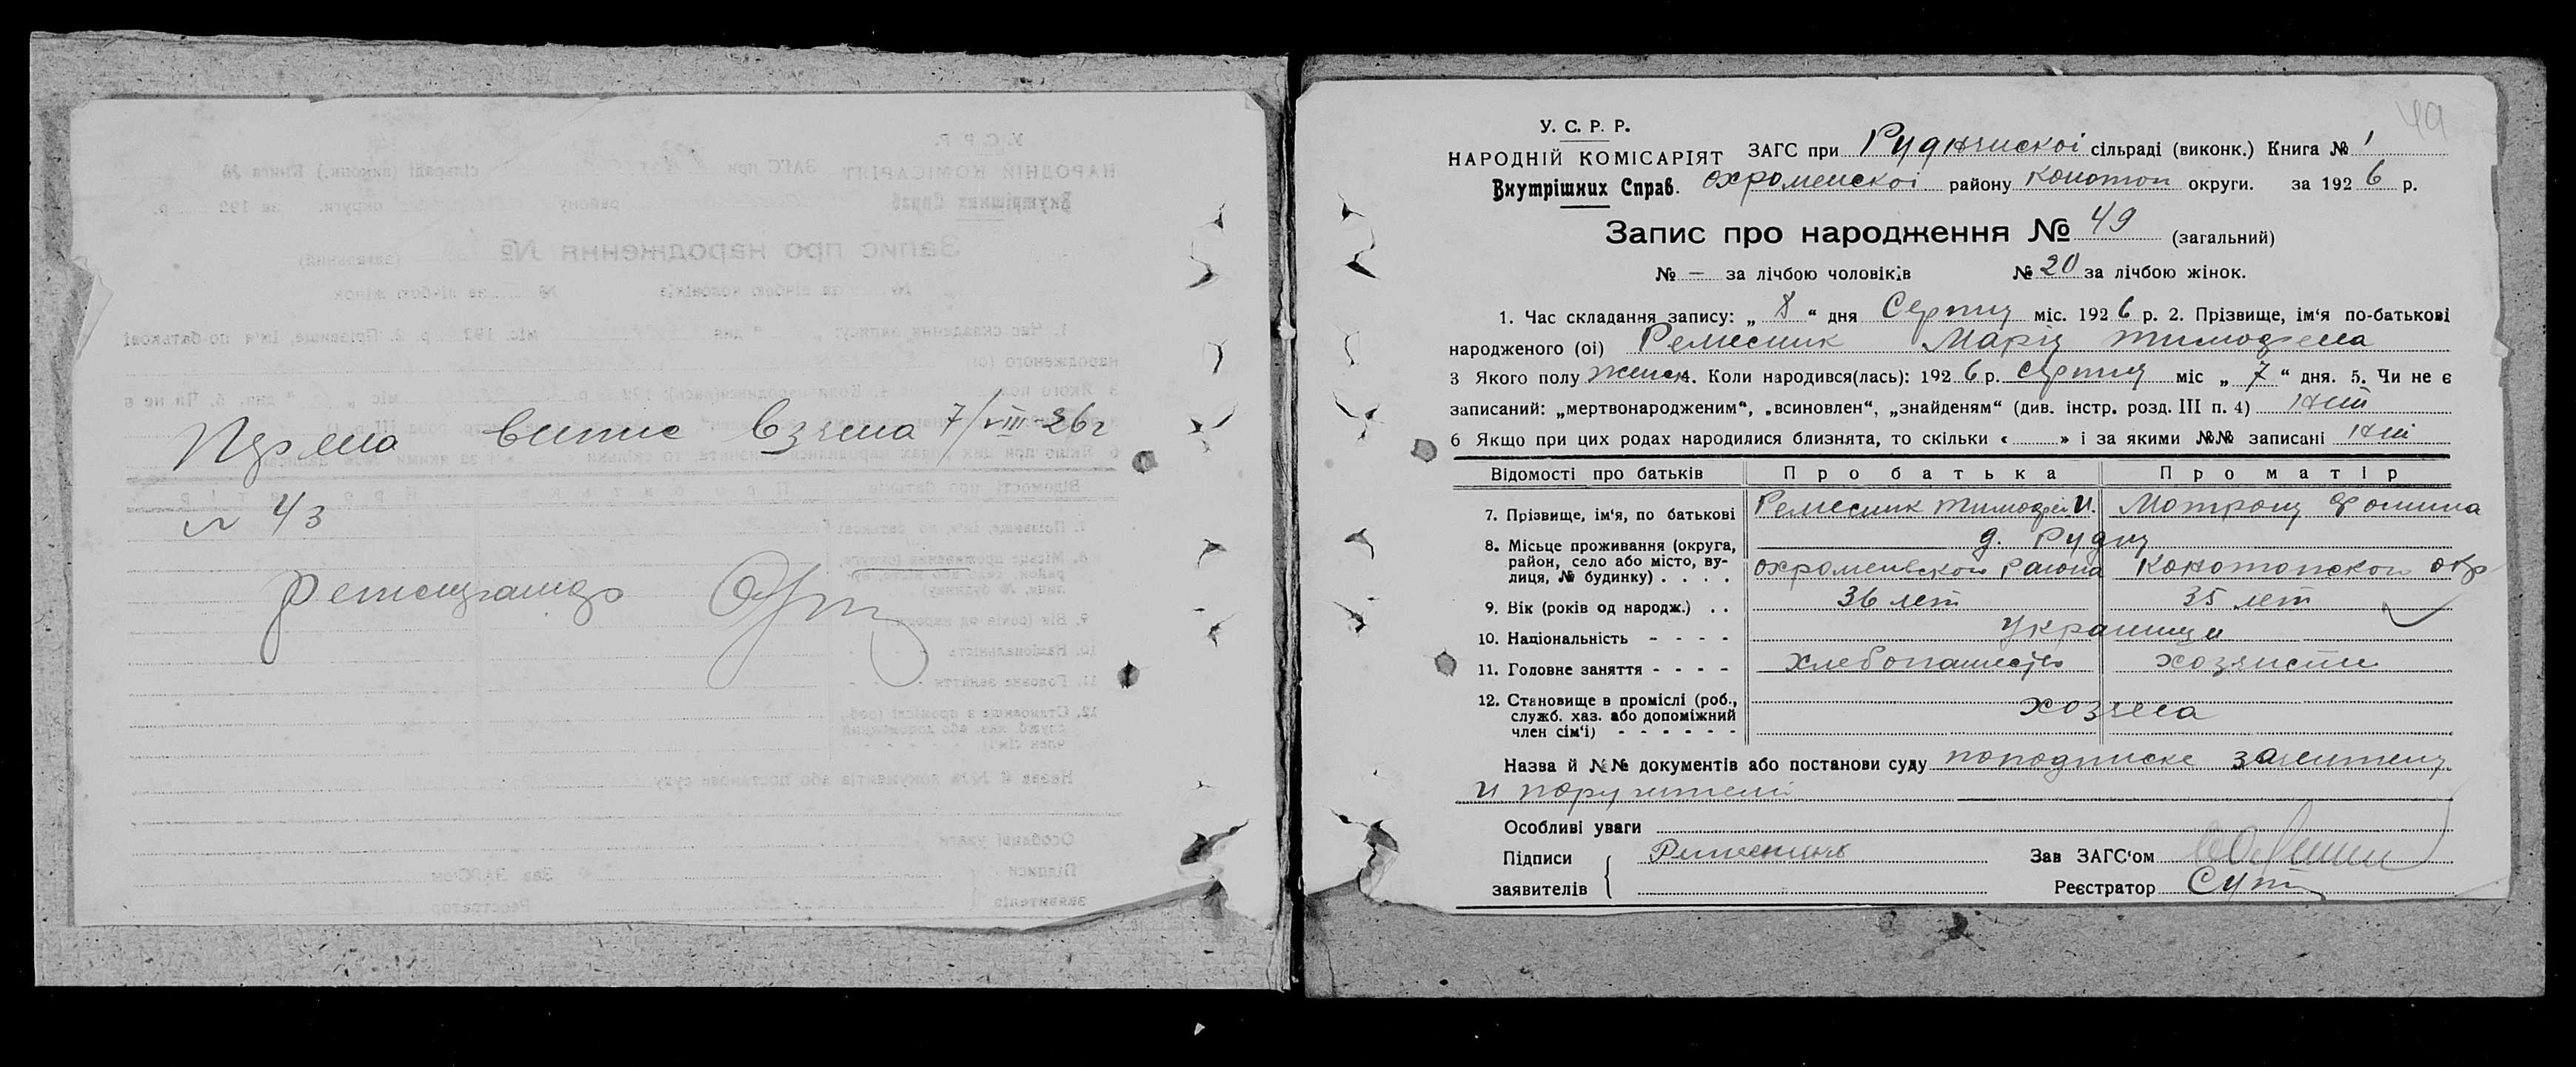 випис взяна 7/VIII-26 г
№ 43
49
У. С. Р. Р.
НАРОДНІЙ КОМІСАРІЯТ
Внутрішних Справ.
ЗАГС при сільраді (виконк.) Книга № 1
району Конотоп округи. за 1926 р.
Запис про народження № 49 (загальний)
№ — за лічбою чоловіків № 20 за лічбою жінок.
1. Час складання запису: „ 8 “ дня Серпня міс. 1926 р. 2. Прізвище, ім‘я по-батькові
народженого (ої) Ремесник Марія
3 Якого полу женск 4. Коли народився(лась): 1926 р. серпня міс „ 7 “ дня. 5. Чи не є
записаний: „мертвонародженим“, „всиновлен“, „знайденям“ (див. інстр. розд. III п. 4)
6 Якщо при цих родах народилися близнята, то скільки « » і за якими №№ записані
Відомості про батьків Про батька Про матір
7. Прізвище, ім‘я, по батькові Ремесник Тимофей И. Мотрона Фомина
8. Місьце проживання (округа, район, село або місто, вулиця, № будинку) . . . . д. Рудня
Охромеевского Района Конотопского окр
9. Вік (років од народж.) . . 36 лет 35 лет
10. Національність - - - - Украинци
11. Головне заняття - - - - Хлебопашество
12. Становище в промислі (роб., служб. хаз. або допоміжний член сім‘ї) - - - - - -
Назва й №№ документів або постанови суду по подписке
и поручителей
Особливі уваги
Підписи заявителів Ремесник
Зав ЗАГС‘ом
Реєстратор